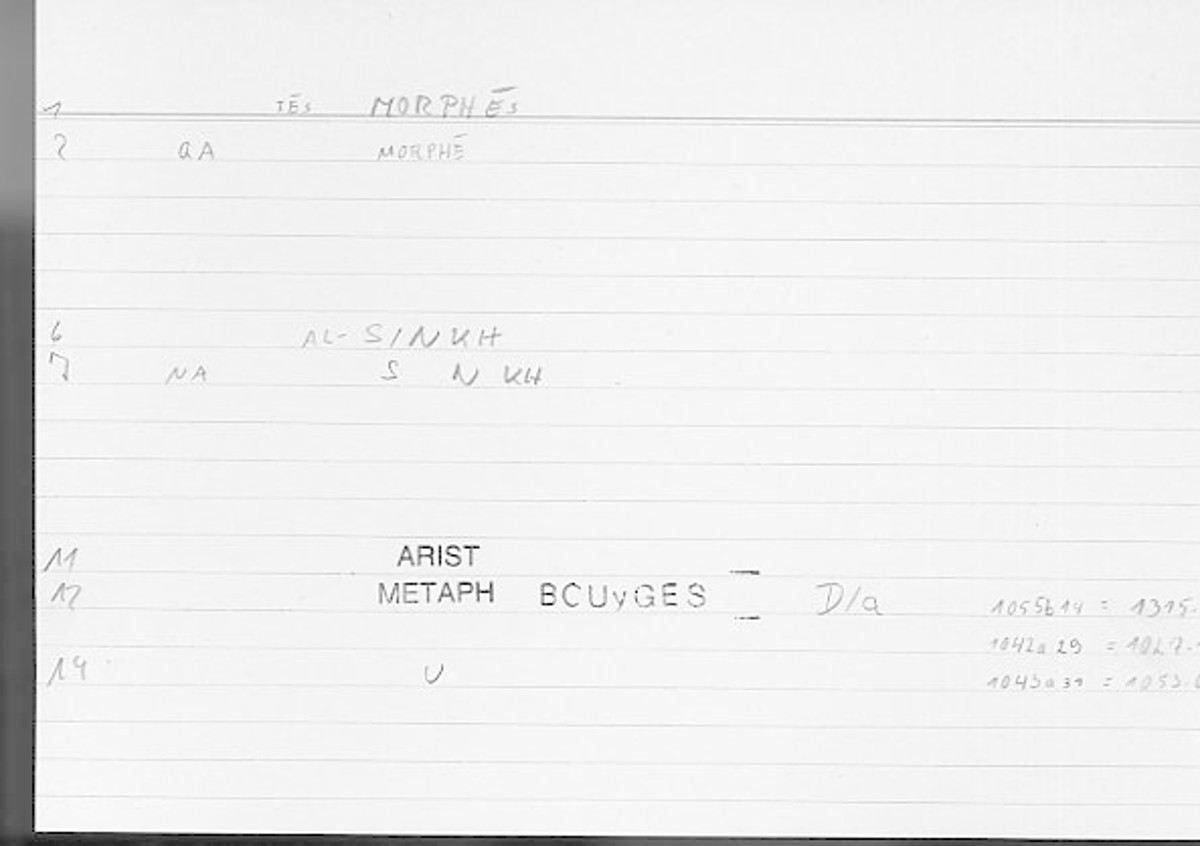 1 TĒS MORPHĒS
2 aA MORPHĒ
6 AL-SINKH
7 NA S N KH
11 ARIST
12 METAPH BCUyGES D/a 1055b14 = 1315.
1042a 29 = 1027.
14 U
1043a31 = 1053.